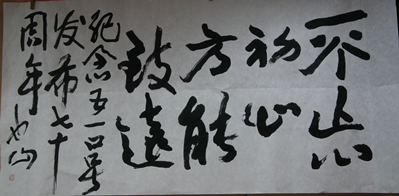 不忘
初心
方能
致遠
纪念五一口号
发布七十
周年